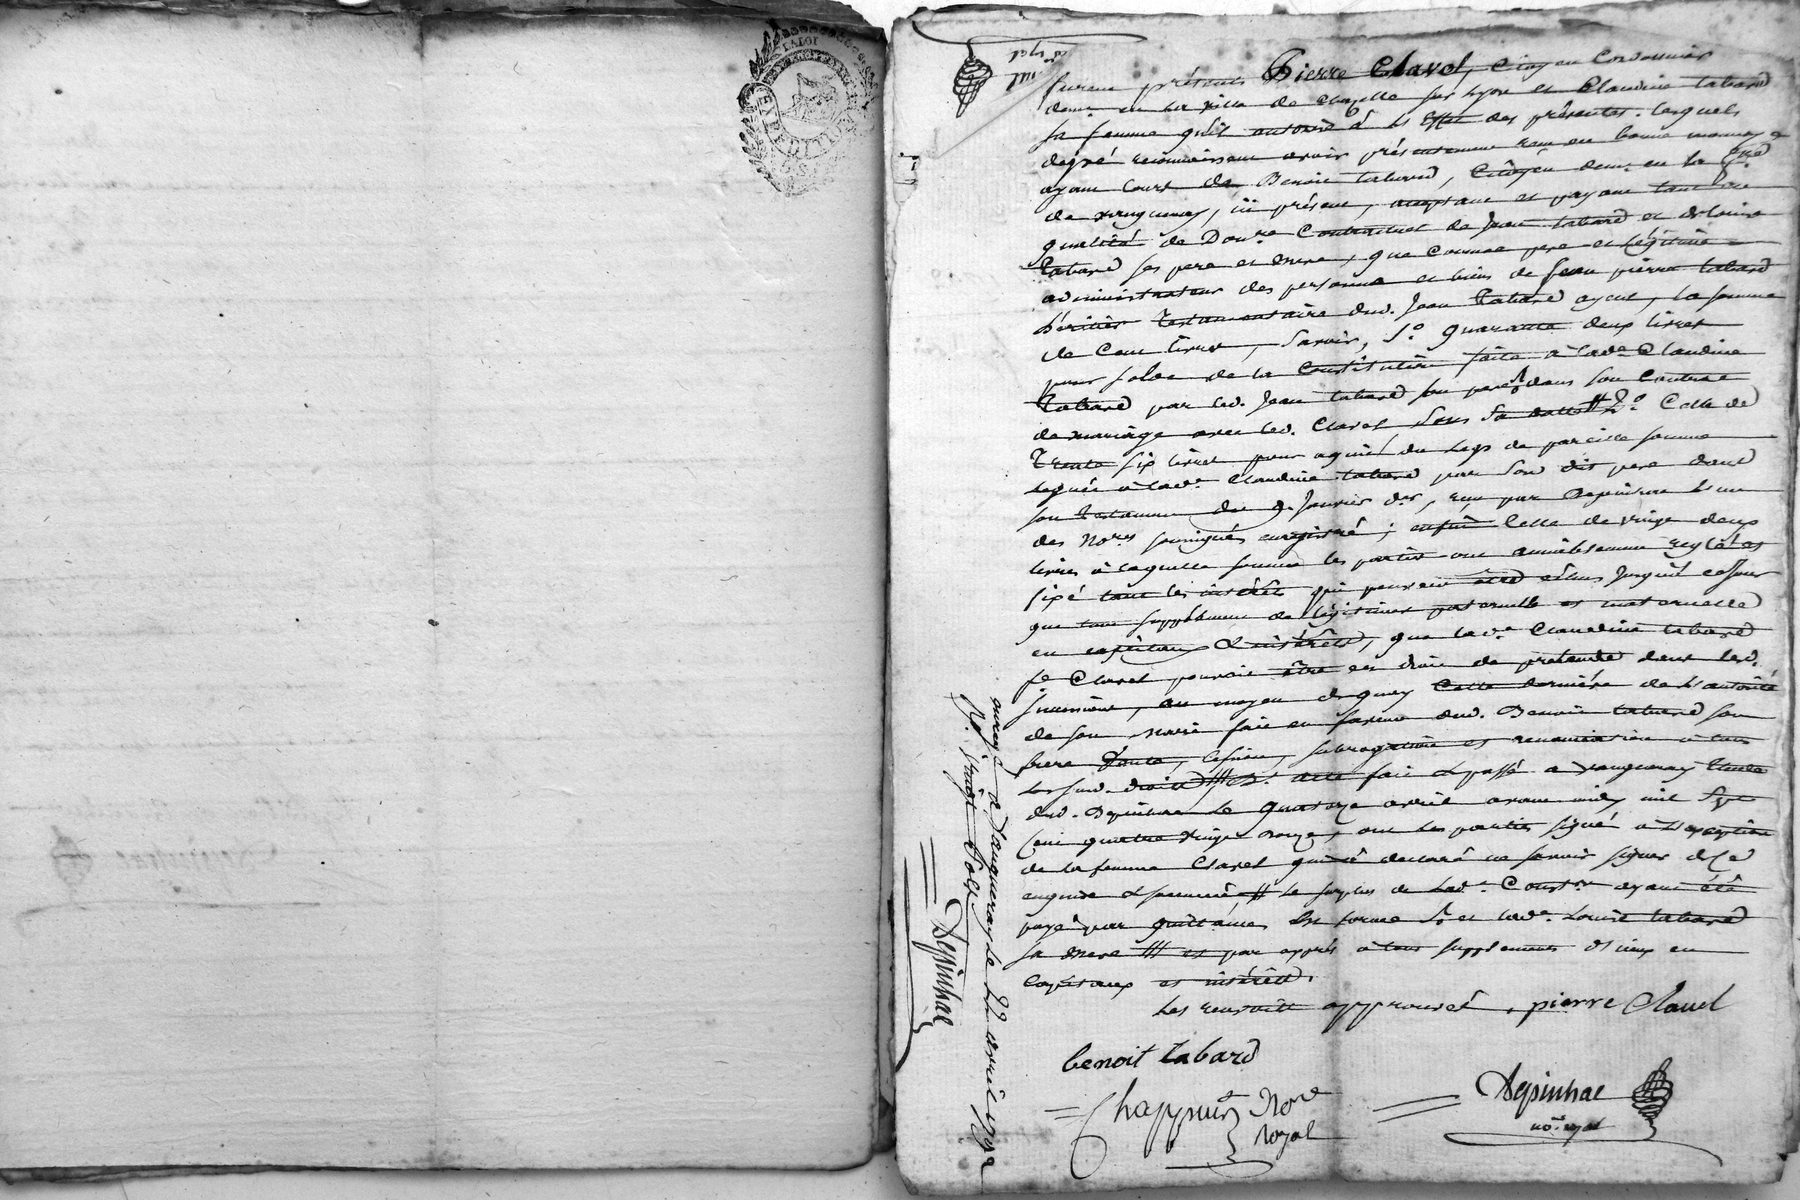 LA LOI
furent présents Pierre Clavel, Citoyen Cordonnier
demt en la ville de Chazelle sur Lyon et Claudine tabard
sa femme qu'il autorise à l'effet des présentes. lesquels
degré reconnaissent avoir présentement reçu en bonne monnoye
ayant cours de Benoit tabard, Citoyen demt en la
de vaugneray, ici présent, acceptant et payant tant en
qualité de Donre Contractuel de Jean tabard et de louise
tabard ses pere et mere, que comme pere et légitime
administrateur des personne et biens de Jean pierre tabard
héritier testamentaire dud. Jean tabard ayeul, la somme
de Cent livres, Savoir, 1° quarante deux livres
pour solde de la Constitution faite à lade Claudine
tabard par led. Jean tabard son pere dans son Contrat
de mariage avec led. Clavel Sous Sa datte # 2° Celle de
Trente six livres pour acquit du legs de pareille somme
legué à lade Claudine tabard par son dit pere dans
son testament du 9. Janvier der, reçu par Depinhac l'un
des Nores soussignés enregistré; enfin Celle de vingt deux
livres à laquelle somme les parties ont amiablement reglé et
fixé tant les intérêts qui peuvent être dus jusqu'à ce jour
que tout supplément de légitimes paternelle et maternelle
en capitaux & intérêts, que lade Claudine tabard
fe Clavel pouvoit être en droit de prétendre dans lesd.
successions, au moyen de quoy Cette derniére de l'autorité
de son mari fait en faveur dud. Benoit tabard son
frere toute, cession, subrogation et renonciation à tous
les susd. droits ### acte fait & passé a vaugneray Etude
dud. Depinhac le quatorze avril avant midy mil sept
cent quatre vingt onze, ont les parties signé à l'exception
de la femme Clavel qui a declaré ne savoir signer de ce
enquise & sommée # le surplus de lade Conston ayant été
payé par quittances en forme et lade louise tabard
sa mere ### et par apprés à tous supplements d'iceux en
Capitaux et intérêts.
Les renvois approuvés. pierre Clavel
benoit tabard
Chappuis Nore
royal
Depinhac
no. royal
enreg. à Vaugneray le 22 avril 1791
Depinhac